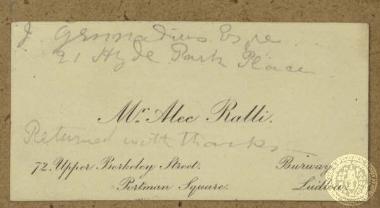 J Gennadius Esqre
21 Hyde Park Place
Mr. Alec Ralli.
Returned with thanks
72. Upper Berkeley Street.
Portman Square.
Burway
Ludlow